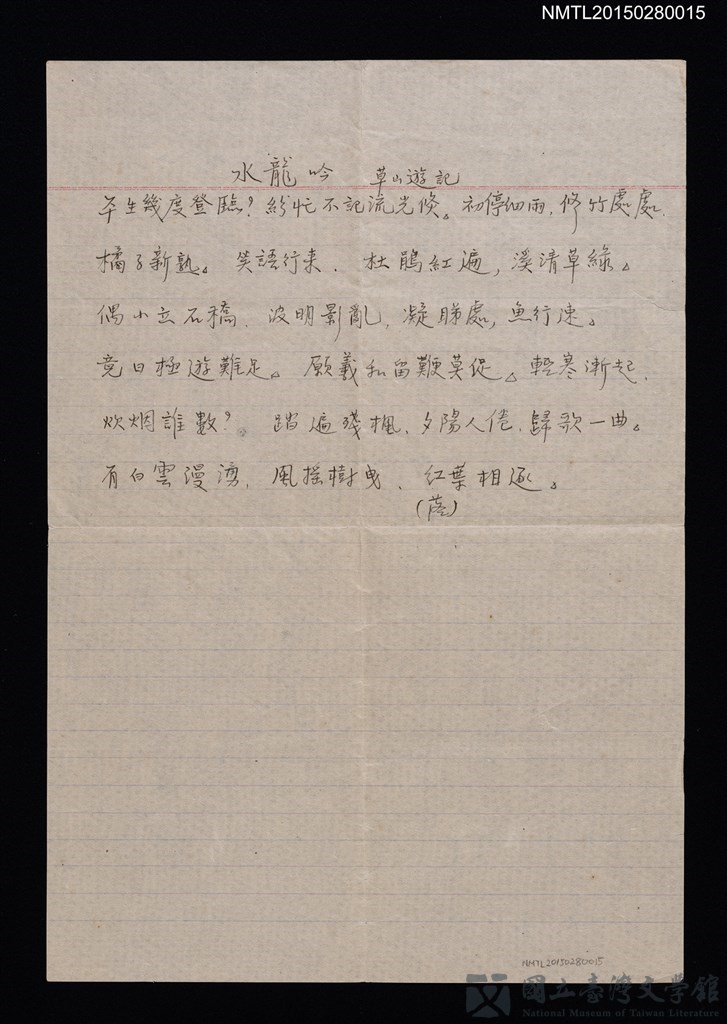 NMTL20150280015
水龍吟 草山遊記
卒生幾度登臨？紛忙不記流光倏。初停細雨，修竹處處、
橘子新熟。笑語行來、杜鵑紅遍，溪清草綠。
偶小立石橋、波明影亂，凝睇處，魚行速。
竟日極遊難足。願羲和留鞭莫促。輕寒漸起、
炊烟誰數？踏遍殘楓、夕陽人倦，歸歌一曲。
有白雲漫湧，風搖樹曳、紅葉相逐。
NMTL20150280015
國立臺灣文學館
National Museum of Taiwan Literature